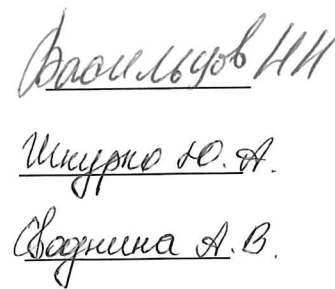 Васильцов НН
Шкурко Ю.А.
Сводинина А.В.